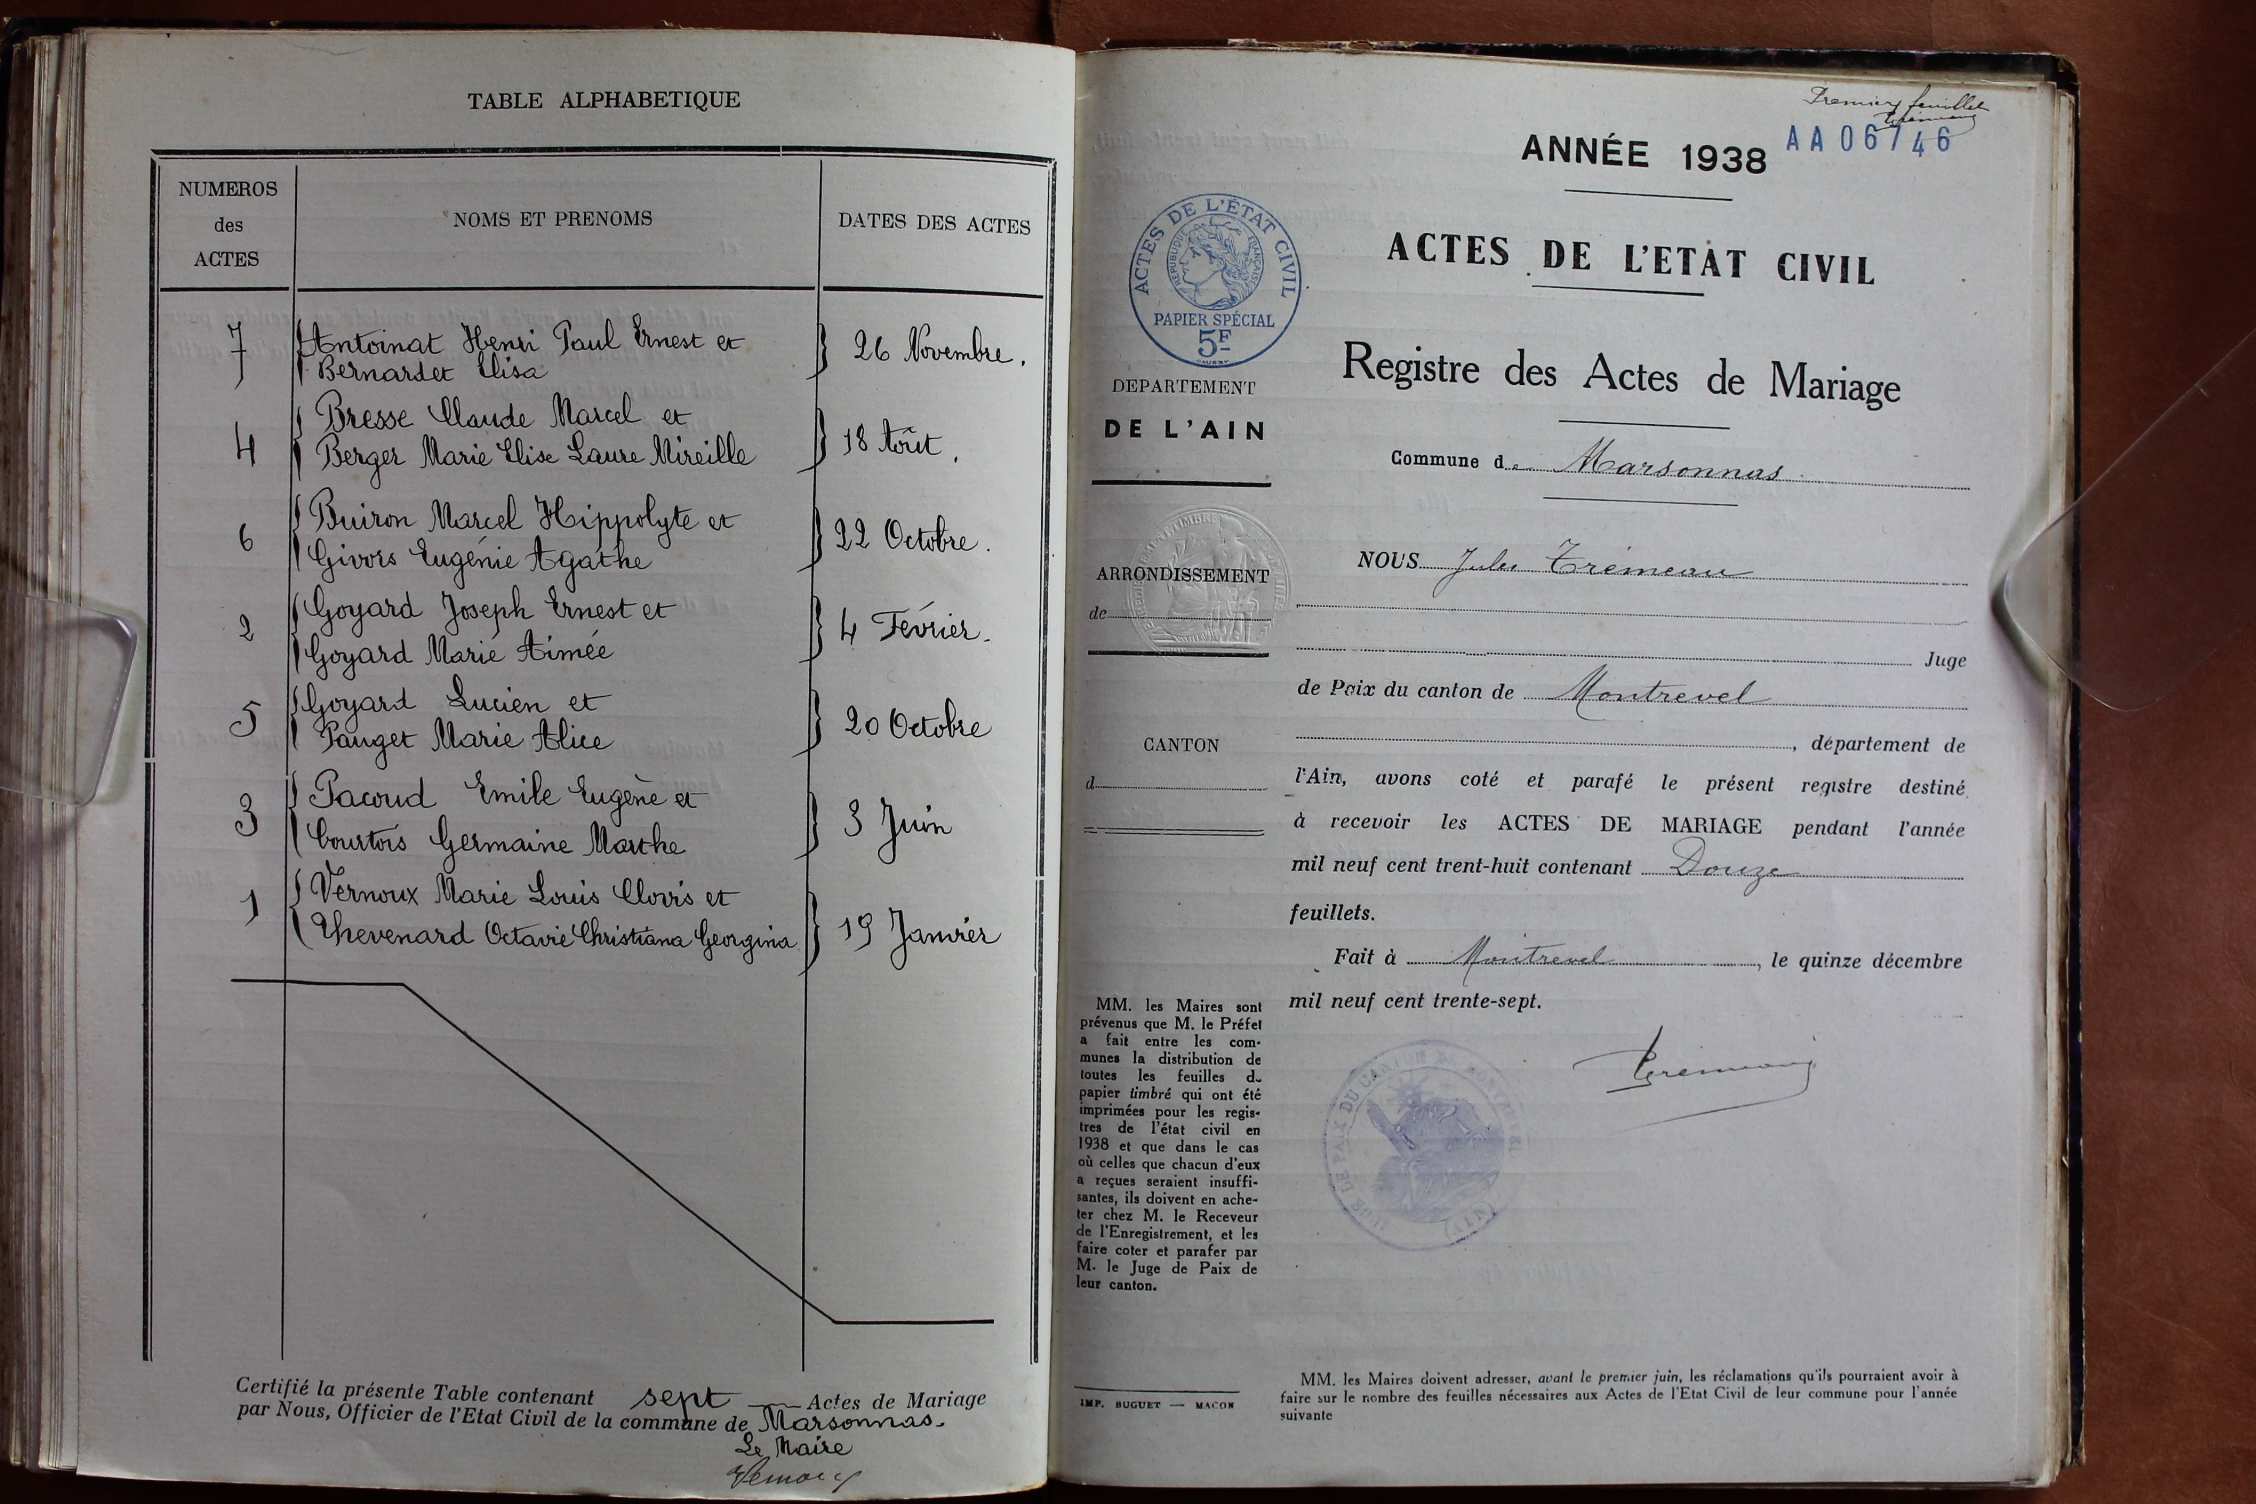 TABLE ALPHABETIQUE
NUMEROS
des
ACTES
NOMS ET PRENOMS
DATES DES ACTES
7 Antoinat Henri Paul Ernest et
Bernardet Elisa
26 Novembre.
4 Bresse Claude Marcel et
Berger Marie Elise Laure Mireille
18 Août.
6 Buiron Marcel Hippolyte et
Givors Eugénie Agathe
22 Octobre.
2 Goyard Joseph Ernest et
Goyard Marie Aimée
4 Février.
5 Goyard Lucien et
Pauget Marie Alice
20 Octobre
3 Pacoud Emile Eugène et
Courtois Germaine Marthe
3 Juin
1 Vernoux Marie Louis Clovis et
Thevenard Octavie Christiana Georgina
19 Janvier
Certifié la présente Table contenant sept Actes de Mariage
par Nous, Officier de l'Etat Civil de la commune de Marsonnas.
Le Maire
Premier feuillet
AA06746
ANNÉE 1938
ACTES DE L'ÉTAT CIVIL
RÉPUBLIQUE FRANÇAISE
PAPIER SPÉCIAL
5F
ACTES DE L'ETAT CIVIL
Registre des Actes de Mariage
DEPARTEMENT
DE L'AIN
Commune de Marsonnas
ARRONDISSEMENT
de
CANTON
d
NOUS Jules Trémeau
Juge
de Paix du canton de Montrevel
, département de
l'Ain, avons coté et parafé le présent registre destiné
à recevoir les ACTES DE MARIAGE pendant l'année
mil neuf cent trent-huit contenant Douze
feuillets.
Fait à Montrevel, le quinze décembre
mil neuf cent trente-sept.
MM. les Maires sont
prévenus que M. le Préfet
a fait entre les com-
munes la distribution de
toutes les feuilles de
papier timbré qui ont été
imprimées pour les regis-
tres de l'état civil en
1938 et que dans le cas
où celles que chacun d'eux
a reçues seraient insuffi-
santes, ils doivent en ache-
ter chez M. le Receveur
de l'Enregistrement, et les
faire coter et parafer par
M. le Juge de Paix de
leur canton.
IMP. BUGUET — MACON
MM. les Maires doivent adresser, avant le premier juin, les réclamations qu'ils pourraient avoir à
faire sur le nombre des feuilles nécessaires aux Actes de l'Etat Civil de leur commune pour l'année
suivante